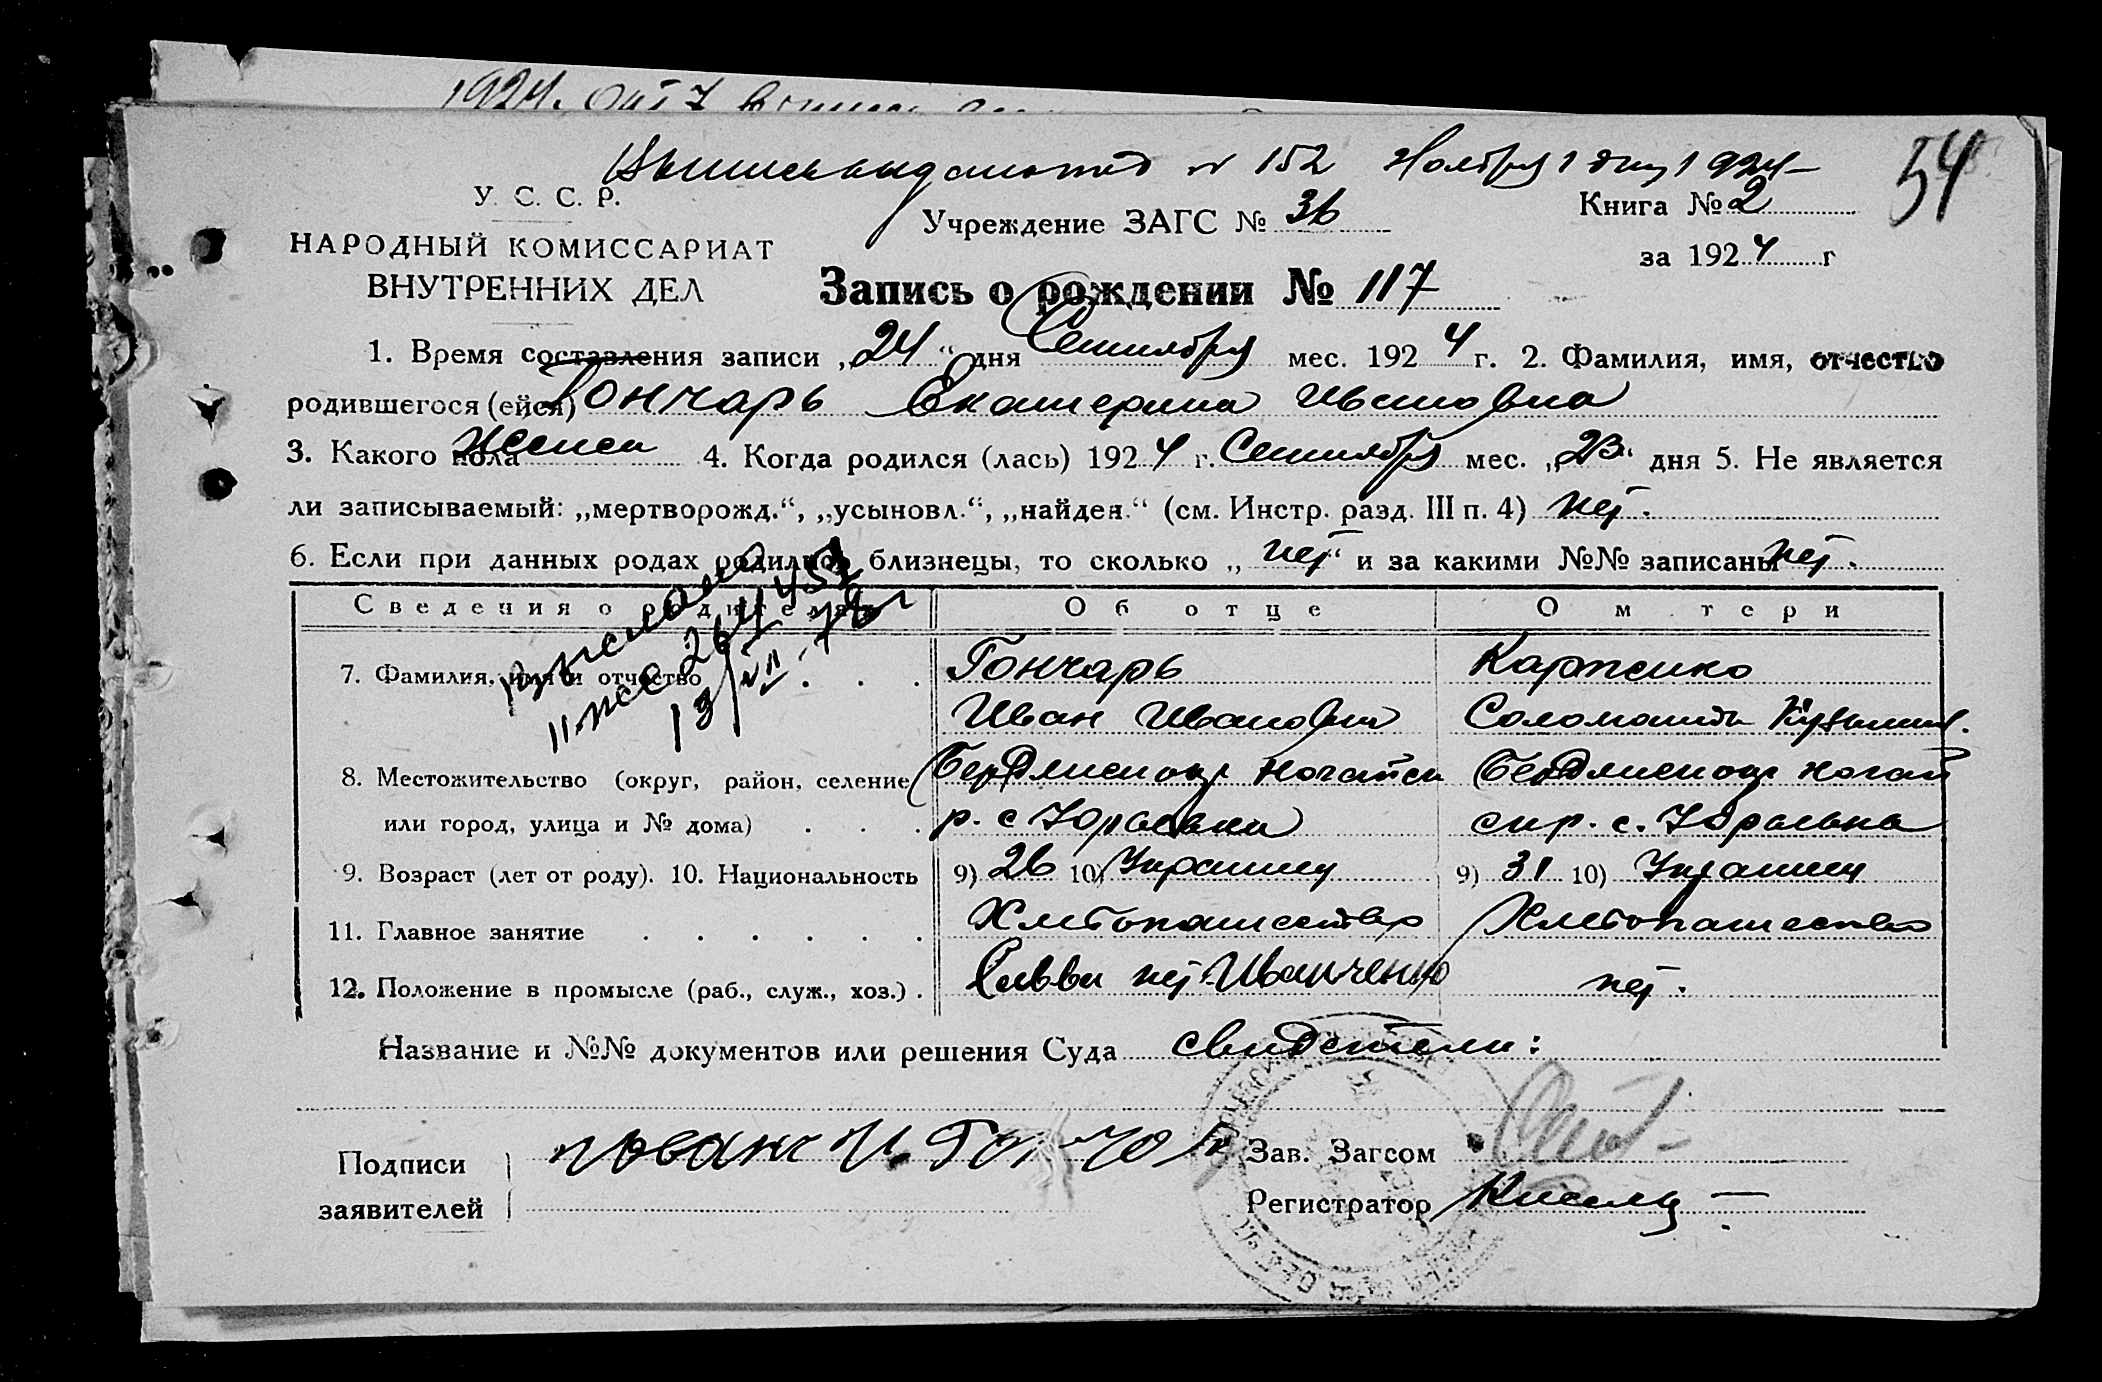 1924. Окт 7
№ 152 Ноября 1 дня 1924
54
У. С. С. Р.
Учреждение ЗАГС № 36
Книга № 2
НАРОДНЫЙ КОМИССАРИАТ
за 1924 г
ВНУТРЕННИХ ДЕЛ
Запись о рождении № 117
1. Время составления записи „24“ дня Сентября мес. 1924 г. 2. Фамилия, имя, отчество
родившегося (ейся) Гончарь Екатерина Ивановна
3. Какого пола женск 4. Когда родился (лась) 1924 г. Сентября мес. „23“ дня 5. Не является
ли записываемый: „мертворожд.“, „усыновл.“, „найден.“ (см. Инстр. разд. III п. 4) нет.
6. Если при данных родах родились близнецы, то сколько „нет“ и за какими №№ записаны нет.
Сведения о родителях Об отце О матери
7. Фамилия, имя и отчество Гончарь
Иван Иванович Соломонида Кузьмин.
8. Местожительство (округ, район, селение Бердянск окр Ногайск Бердянск окр Ногай
или город, улица и № дома) р. с Юрьевка ск р. с. Юрьевка
9. Возраст (лет от роду). 10. Национальность 9) 26 10) Украинец 9) 31 10) Украинец
11. Главное занятие Хлебопашество Хлебопашество
12. Положение в промысле (раб., служ., хоз.) нет Иванченко нет.
Название и №№ документов или решения Суда свидетели:
Подписи
заявителей
Зав. Загсом
Регистратор
выслано
264452
13/VII-78